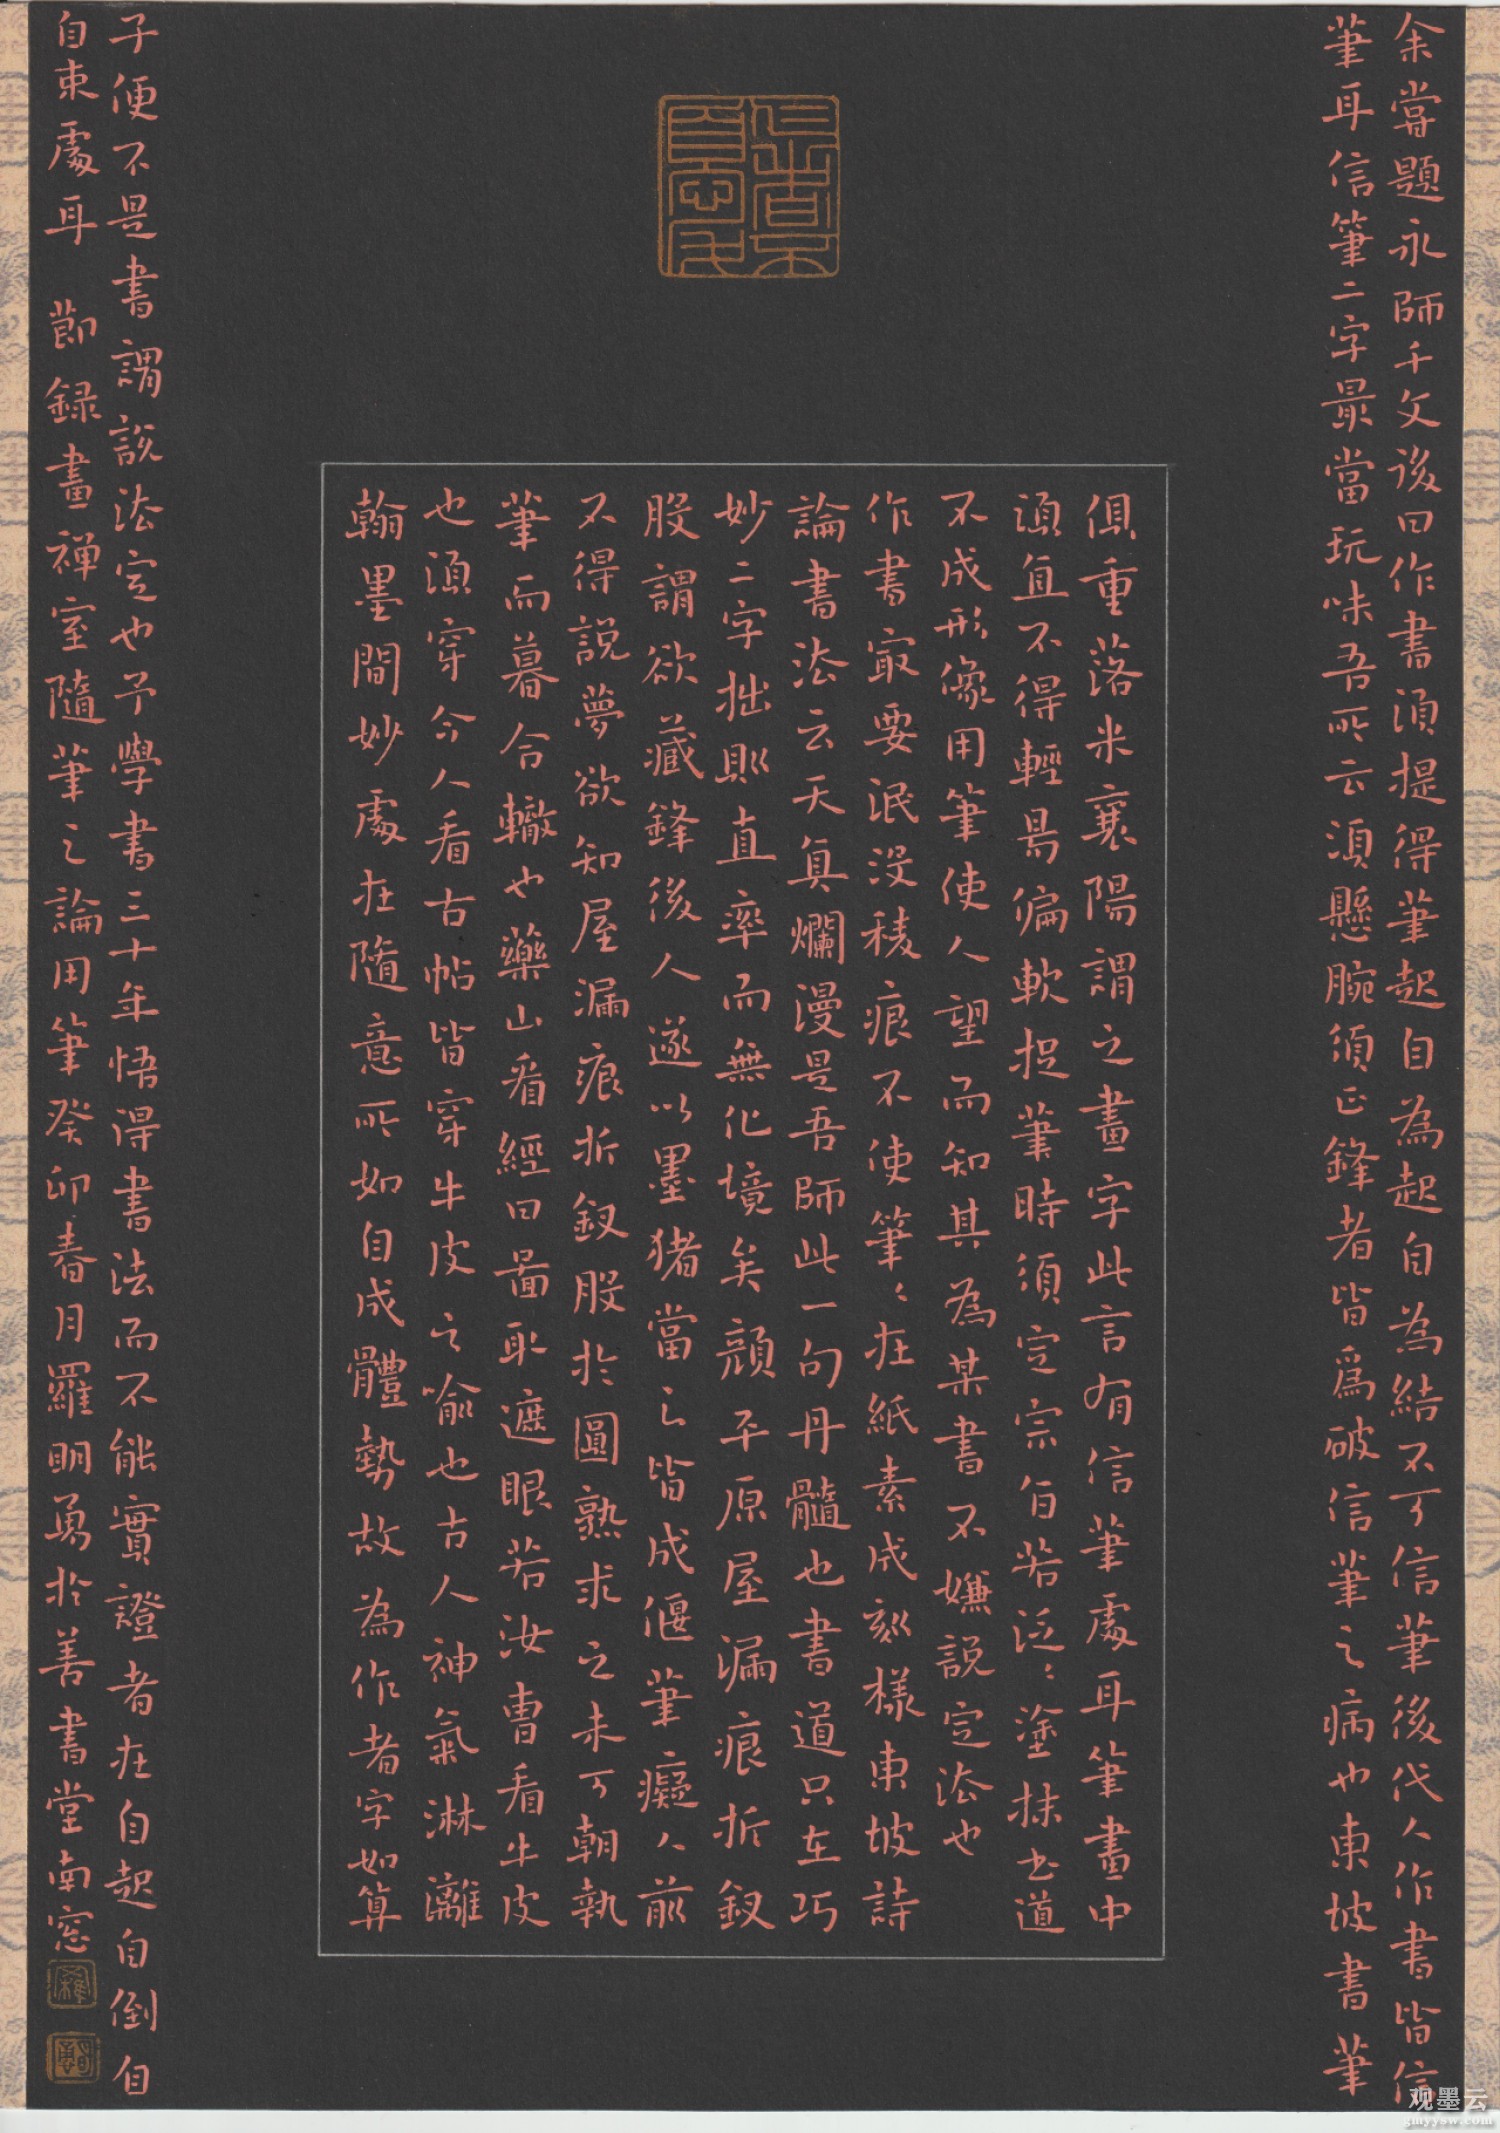 余嘗題永師千文後曰作書須提得筆起自為起自為結不可信筆後代人作書皆信
筆耳信筆二字最當玩味吾所云須懸腕須正鋒者皆為破信筆之病也東坡書筆
俱重落米襄陽謂之畫字此言有信筆處耳筆畫中
須直不得輕易偏軟捉筆時須定宗旨若泛泛塗抹書道
不成形像用筆使人望而知其為某書不嫌說定法也
作書最要泯沒稜痕不使筆筆在紙素成刻樣東坡詩
論書法云天真爛漫是吾師此一句丹髓也書道只在巧
妙二字拙則直率而無化境矣顏平原屋漏痕折釵
股謂欲藏鋒後人遂以墨猪當之皆成偃筆癡人前
不得說夢欲知屋漏痕折釵股於圓熟求之未可朝執
筆而暮合轍也藥山看經曰圖取遮眼若汝曹看牛皮
也須穿今人看古帖皆穿牛皮之喻也古人神氣淋離
翰墨間妙處在隨意所如自成體勢故為作者字如算
子便不是書謂說法定也予學書三十年悟得書法而不能實證者在自起自倒自
自束處耳 節錄畫禅室隨筆之論用筆癸卯春月羅明勇於善書堂南窓
观墨云
gmyysw.com